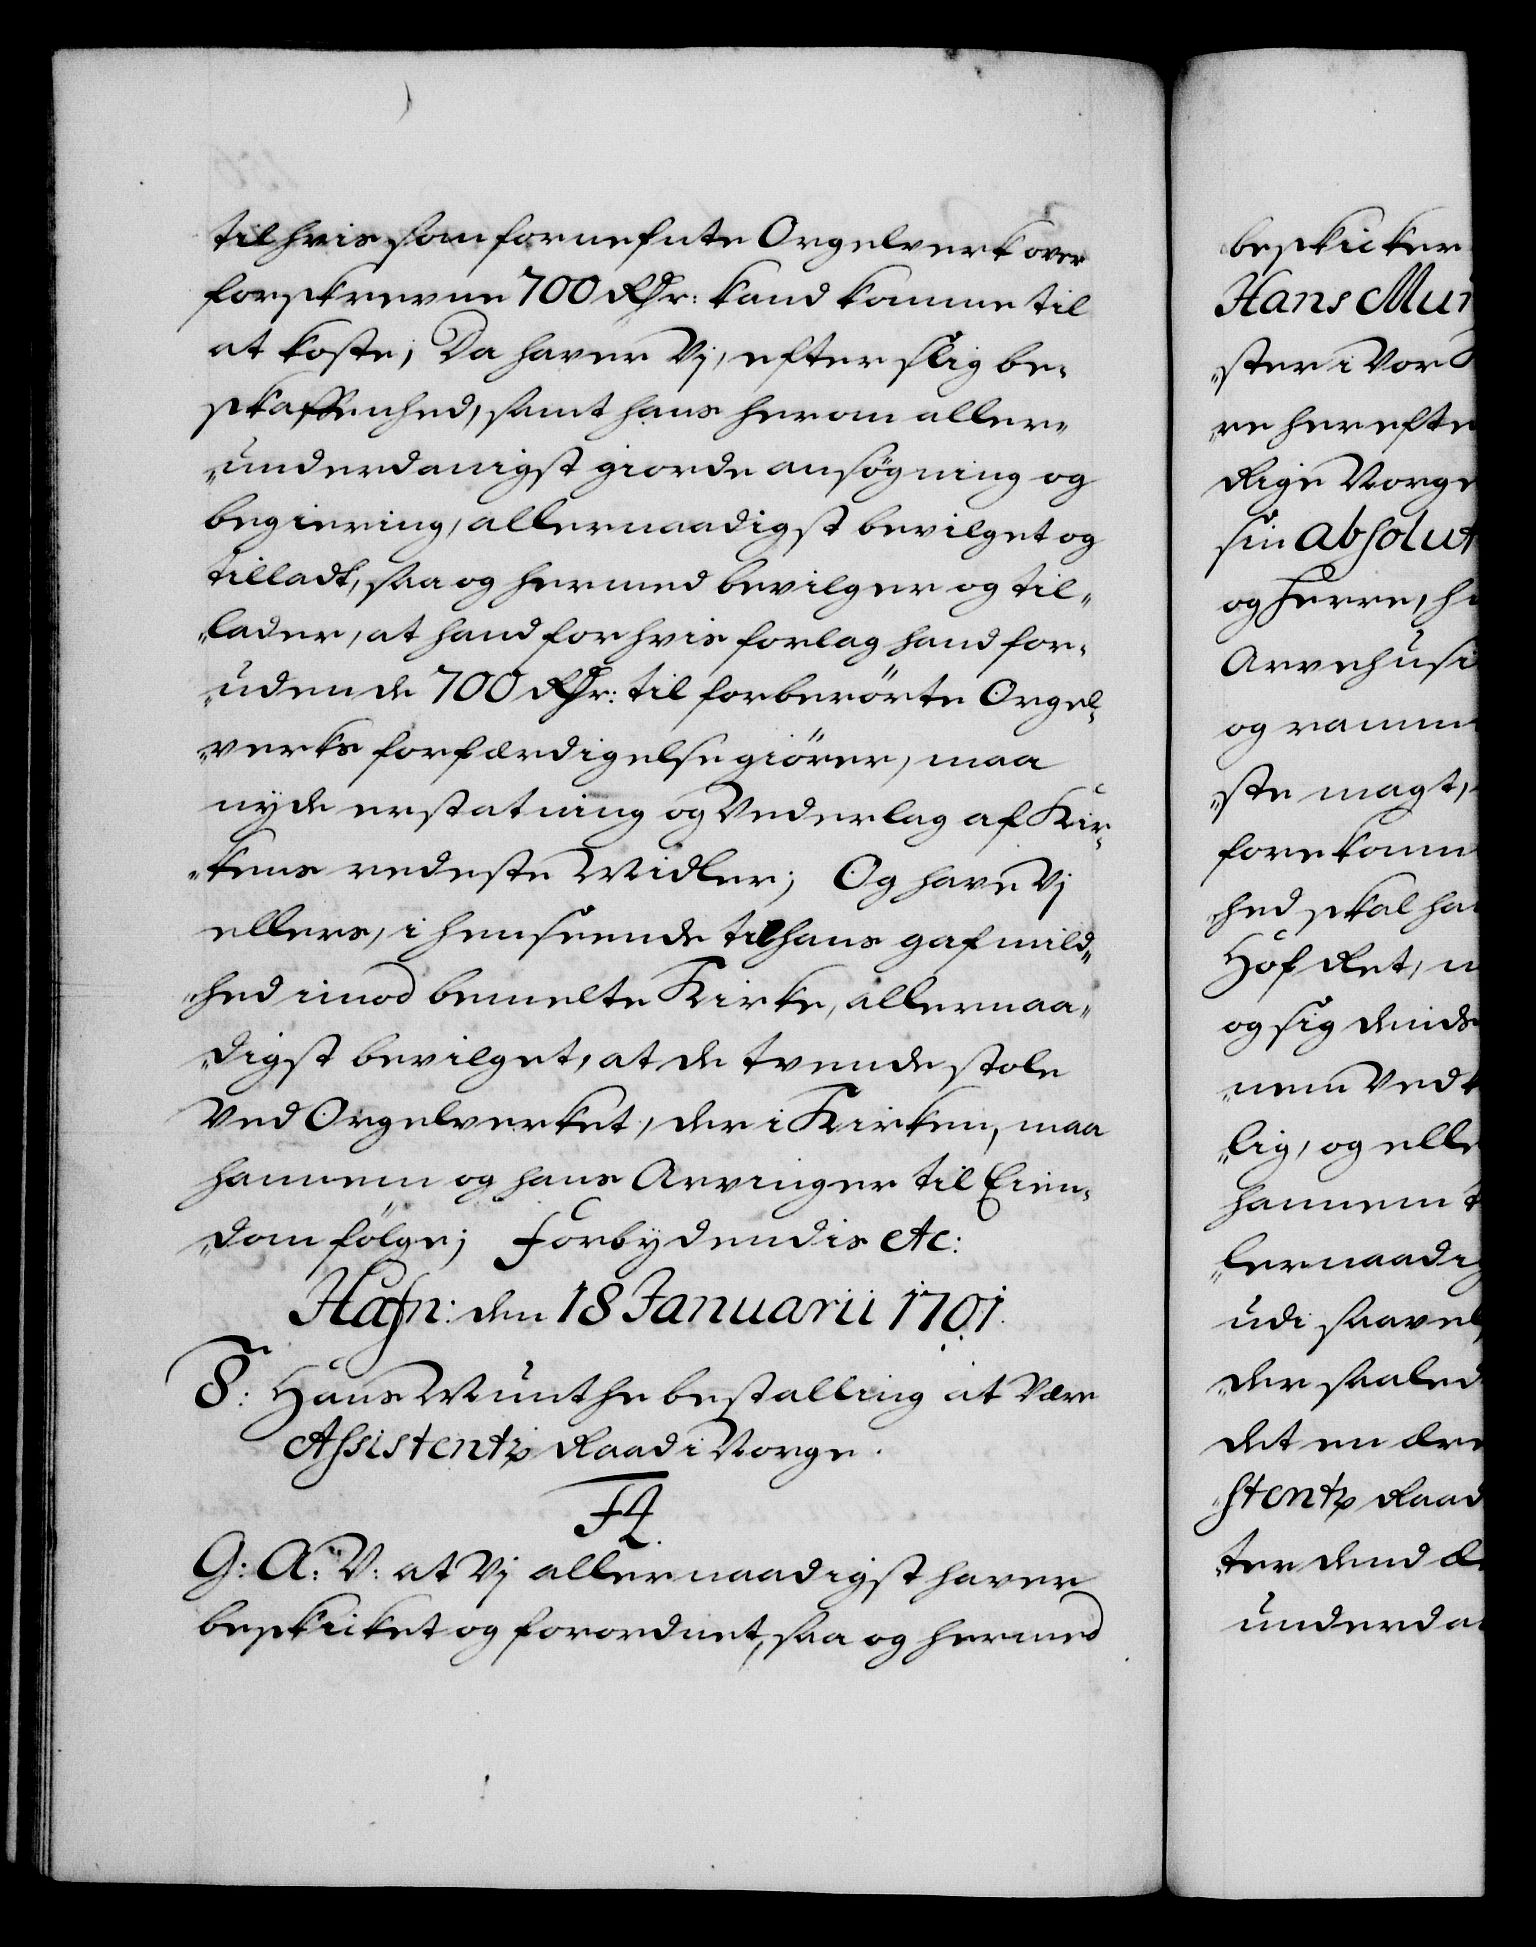 til hvis som fornefnte Orgelverk over
forskrevne 700 Rdr: kand komme til
at koste; Da haver Vj, efter slig be-
skaffenhed, samt hans herom aller-
underdanigst giorde ansøgning og
begiering, allernaadigst bevilget og
tilladt, saa og hermed bevilger og til-
lader, at hand for hvis forlag hand for-
uden de 700 Rdr: til forberörte Orgel-
verks forfærdigelse giörer, maa
nyde erstatning og Vederlag af Kir-
kens redeste Midler; Og have Vj
ellers, i henseende til hans gafmild-
hed imod bemelte Kirke, allernaa-
digst bevilget, at de tvende stole
Ved Orgelverket, der i Kirken, maa
hannem og hans Arvinger til Eien-
dom følge; Forbydendis etc:
Hafn: den 18 Januarii 1701.
8: Hans Munthe bestalling at være
Assistentz Raad i Norge.
F4.
G: A: V: at Vj allernaadigst haver
beskicket og forordnet, saa og hermed
beskicker
Hans Mun
ster i Vor
re herefte
Rige Norge
sin absolut
og Herre, h
Arvehusi
og ramm
ste magt,
forekomm
hed skal ha
Hof Ret,
og sig denid
nem Ved
lig, og elle
hannem t
lernaadig
udi saavel
der saaled
det en ære
stentz Raad
ter dend
underda